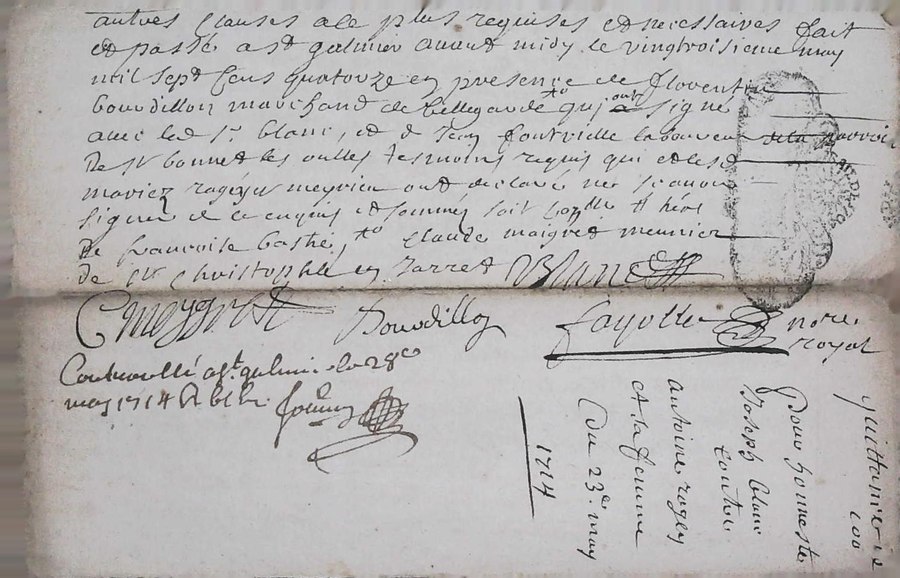 autres clauses a ce plus requises et necessaires fait
et passé a st galmier avant midy le vingtroisieme may
mil sept cens quatorze en presence de Floventin
bourdillon marchand de bellegarde qui ont signé
avec led sr blanc, et de Jean laboureur de la parroisse
de st bonnet les oulles tesmoins requis qui et lesd
mariez ragey meyrieu ont declaré ne scavoir
signer de ce enquis et sommés soit heoirs
de francoise bathie, claude maigret meunier
de st Christophle en Jarret Blanc
C meygret Bourdillon fayolle nore
royal
Controollé a st galmier le 28e
may 1714
quittance
100
pour honneste
Joseph blanc
contre
antoine ragey
et sa femme
du 23e may
1714